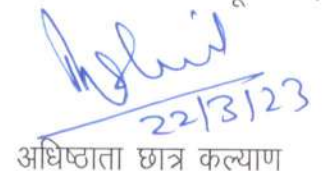 22/3/23
अधिष्ठाता छात्र कल्याण